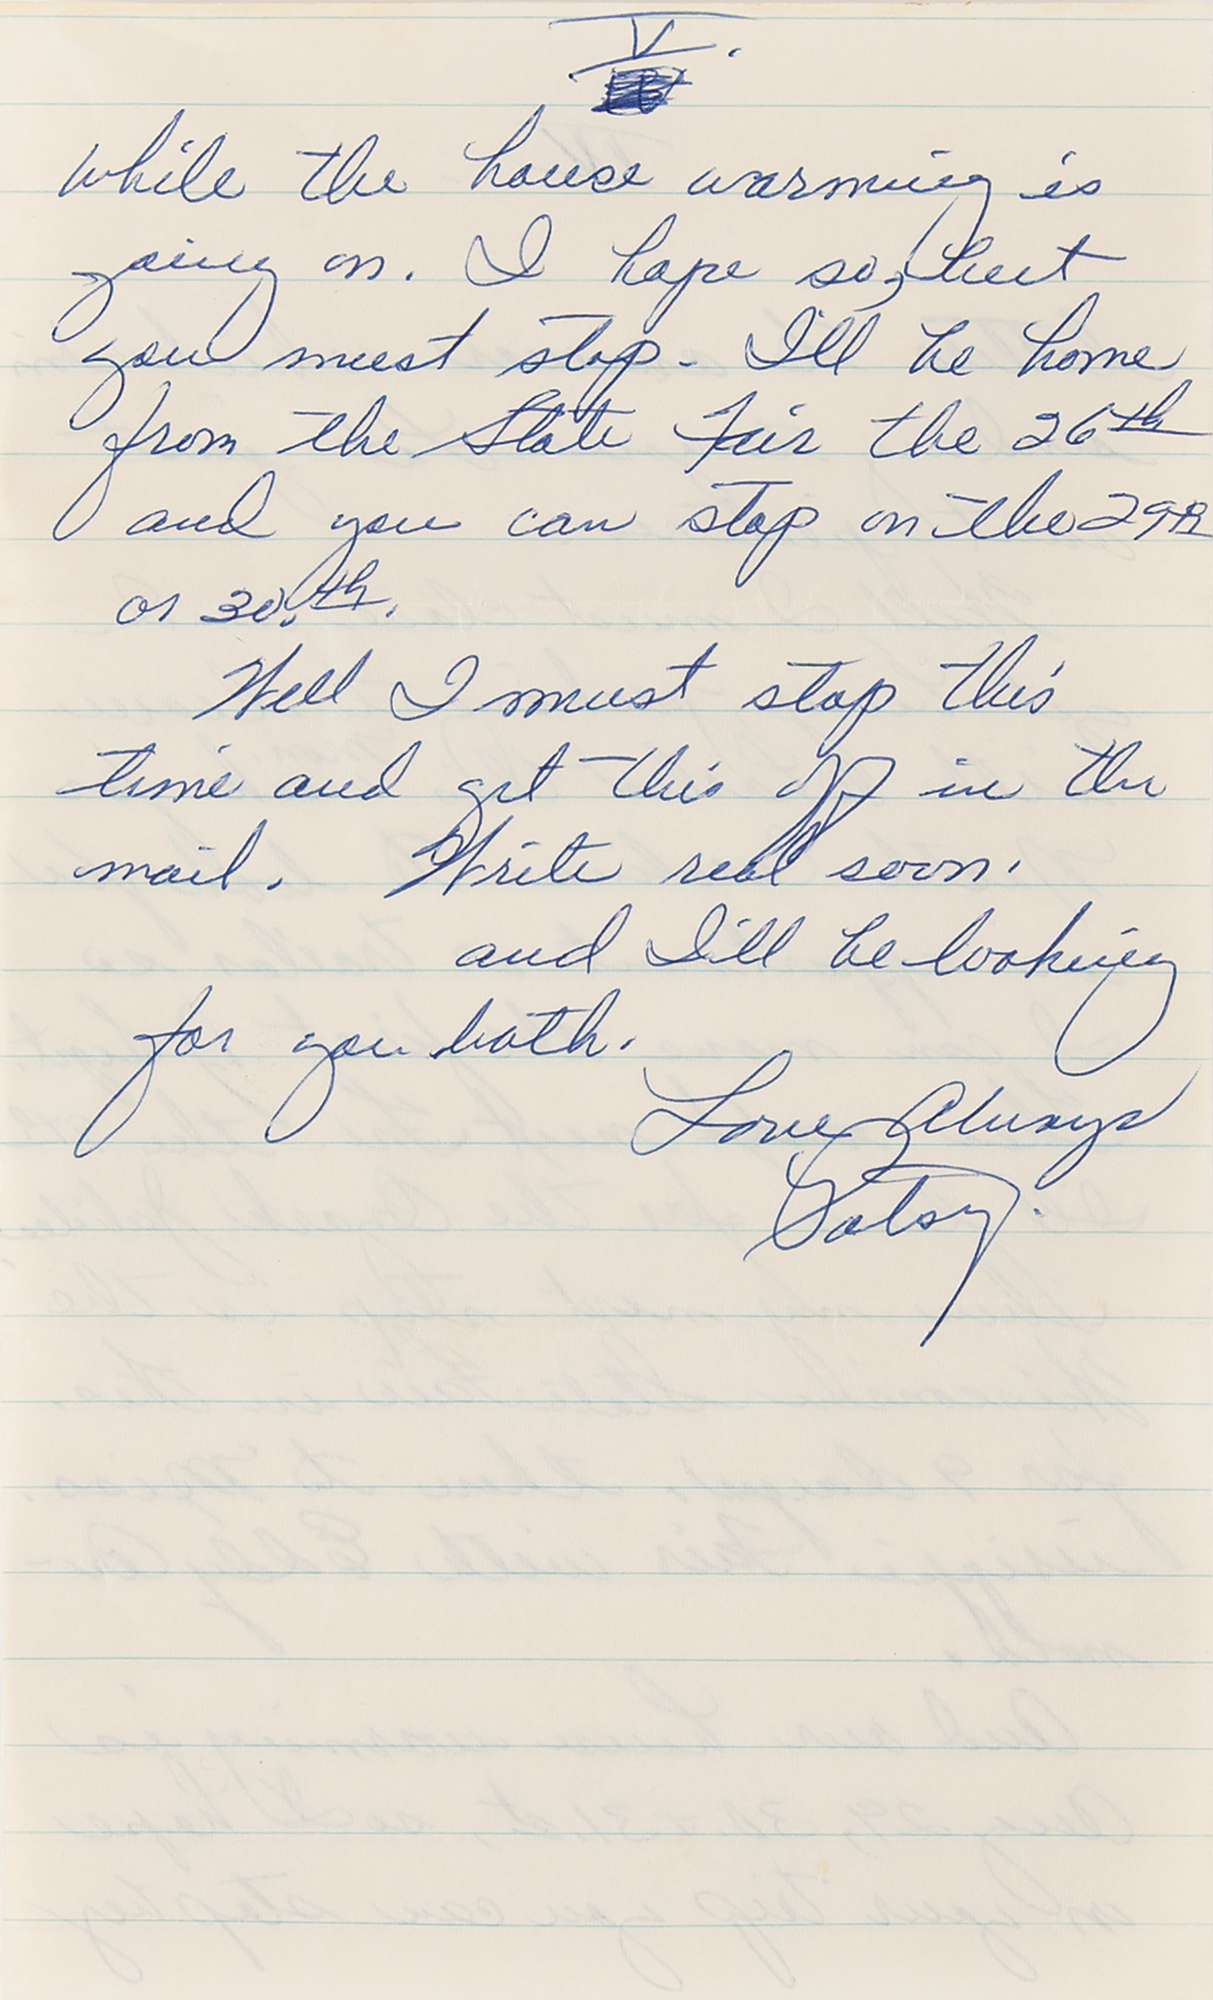 V.
while the house warming is
going on. I hope so, but
you must stop. I'll be home
from the State Fair the 26th
and you can stop on the 29th
or 30.th.
Well I must stop this
time and get this off in the
mail. Write real soon.
and I'll be looking
for you both.
Love Always
Patsy.